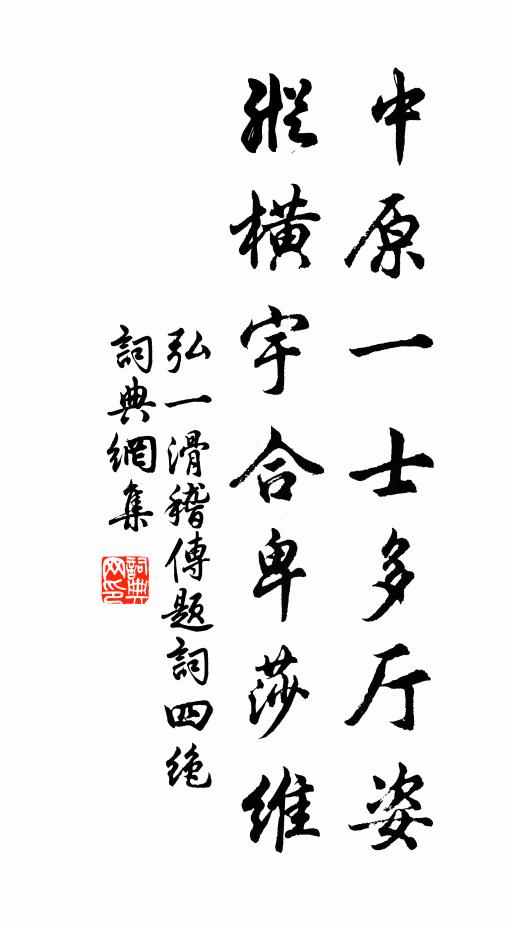 中原一士多厅姿
縱橫宇合卑莎維
弘一滑稽傳題詞四绝
詞典網集
詞典网印